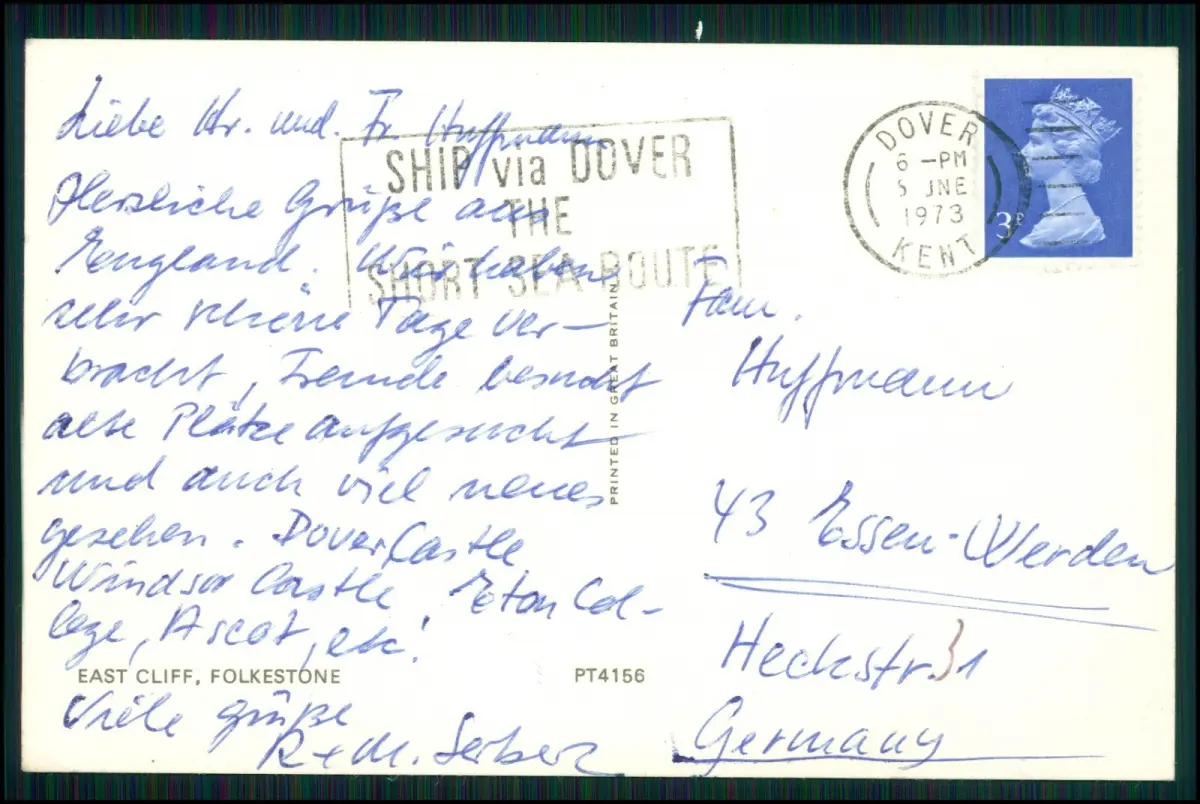 Liebe Hr. und. Fr. Huffmann
Herzliche Grüße aus
England. Wir haben
sehr schöne Tage ver-
bracht, Freunde besucht
alte Plätze aufgesucht
und auch viel neues
gesehen. Dover Castle
Windsor Castle, Eton Col-
lege, Ascot, etc!
EAST CLIFF, FOLKESTONE
PT4156
Viele Grüße
R + M.
SHIP via DOVER
THE
SHORT SEA ROUTE
PRINTED IN GREAT BRITAIN
DOVER
6 -PM
5 JNE
1973
KENT
3P
Fam.
Huffmann
43 Essen-Werden
Heckstr. 31
Germany